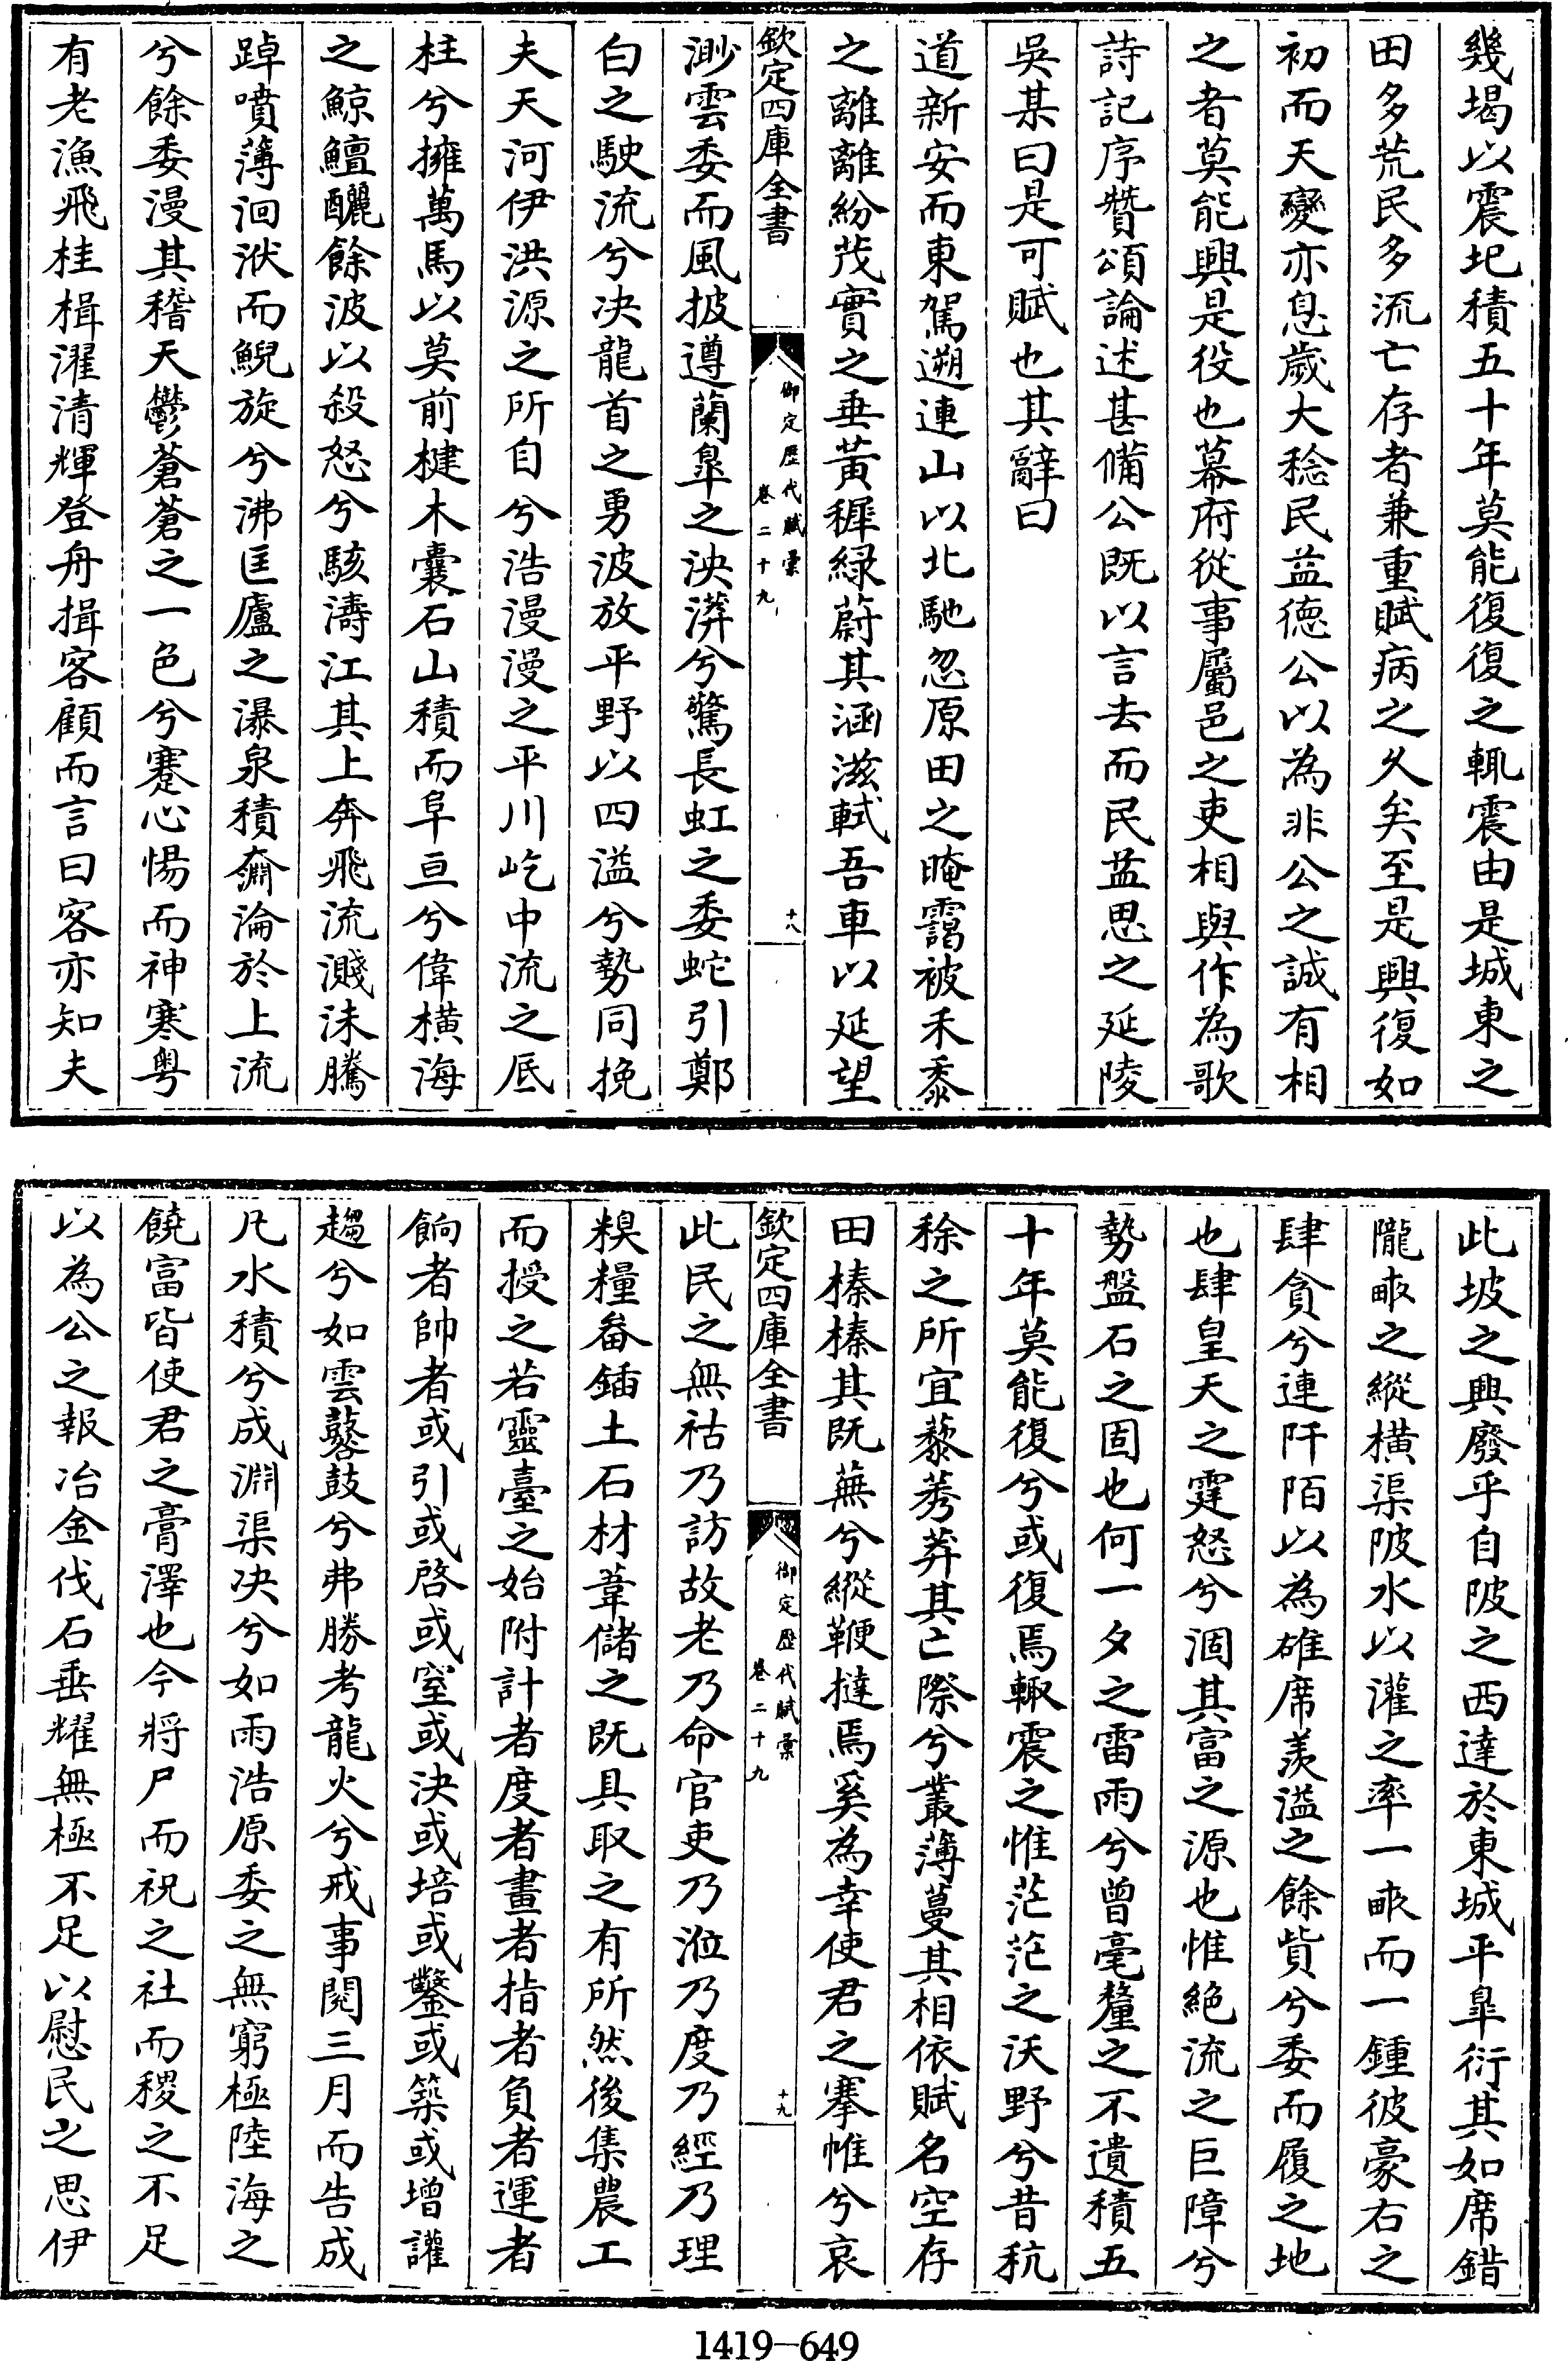 幾堨以震圯積五十年莫能復復之輒震由是城東之
田多荒民多流亡存者兼重賦病之久矣至是興復如
初而天變亦息歲大稔民益德公以為非公之誠有相
之者莫能興是役也幕府從事屬邑之吏相與作為歌
詩記序贊頌論述甚備公既以言去而民益思之延陵
吳某曰是可賦也其辭曰
道新安而東駕遡連山以北馳忽原田之晻靄被禾黍
之離離紛茂實之垂黃穉緑蔚其涵滋軾吾車以延望
欽定四庫全書
御定歷代賦彙
卷二十九
十八
渺雲委而風披遵蘭臯之泱漭兮驚長虹之委蛇引鄭
白之駛流兮决龍首之勇波放平野以四溢兮勢同挽
夫天河伊洪源之所自兮浩漫漫之平川屹中流之厎
柱兮擁萬馬以莫前楗木囊石山積而阜亘兮偉橫海
之鯨鱣釃餘波以殺怒兮駭濤江其上奔飛流濺沫騰
踔噴薄洄洑而鯢旋兮沸匡廬之瀑泉積奫淪於上流
兮餘委漫其稽天鬱蒼蒼之一色兮蹇心惕而神寒粤
有老漁飛桂楫濯清輝登舟揖客顧而言曰客亦知夫
此坡之興廢乎自陂之西達於東城平臯衍其如席錯
隴畝之縱橫渠陂水以灌之率一畝而一鍾彼豪右之
肆貪兮連阡陌以為雄席羡溢之餘貲兮委而履之地
也肆皇天之霆怒兮涸其富之源也惟絶流之巨障兮
勢盤石之固也何一夕之雷雨兮曾毫釐之不遺積五
十年莫能復兮或復焉輒震之惟茫茫之沃野兮昔秔
稌之所宜藜莠莽其亡際兮叢薄蔓其相依賦名空存
田榛榛其既蕪兮縱鞭撻焉奚為幸使君之搴帷兮哀
欽定四庫全書
御定歷代賦彙
卷二十九
十九
此民之無祜乃訪故老乃命官吏乃涖乃度乃經乃理
糗糧畚鍤土石材葦儲之既具取之有所然後集農工
而授之若靈臺之始附計者度者畫者指者負者運者
餉者帥者或引或啓或窒或決或培或鑿或築或增讙
趨兮如雲鼛鼓兮弗勝考龍火兮戒事閱三月而告成
凡水積兮成淵渠决兮如雨浩原委之無窮極陸海之
饒富皆使君之膏澤也今將尸而祝之社而稷之不足
以為公之報冶金伐石垂耀無極不足以慰民之思伊
1419-649